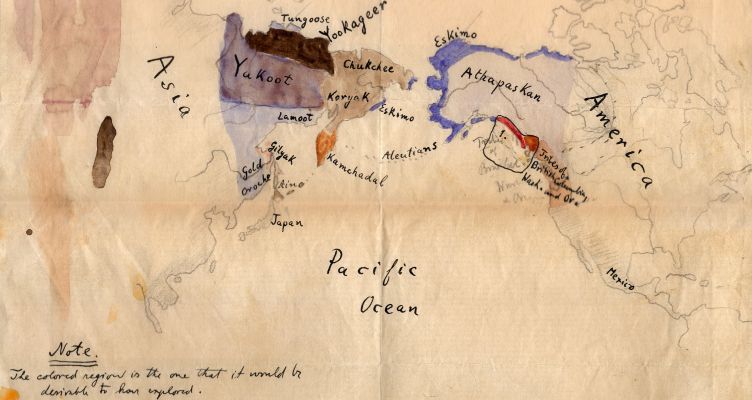 Tungoose
Yookageer
Yakoot
Chukchee
Koryak
Lamoot
Eskimo
Gilyak
Kamchadal
Gold
Oroche
Aino
Japan
Asia
Eskimo
Athapaskan
America
Aleutians
1.
Tribes of
British Columbia,
Wash. and Or.
Mexico
Pacific
Ocean
Note.
The colored region is the one that it would be
desirable to have explored.